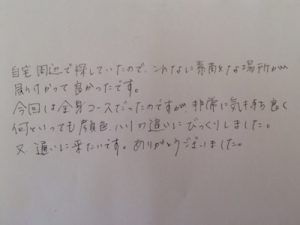 自宅周辺で探していたので、こんなに素敵な場所が
見つかって良かったです。
今回は全身コースだったのですが、非常に気持ち良く
何といっても顔色、ハリの違いにびっくりしました。
又、通いに来たいです。ありがとうございました。